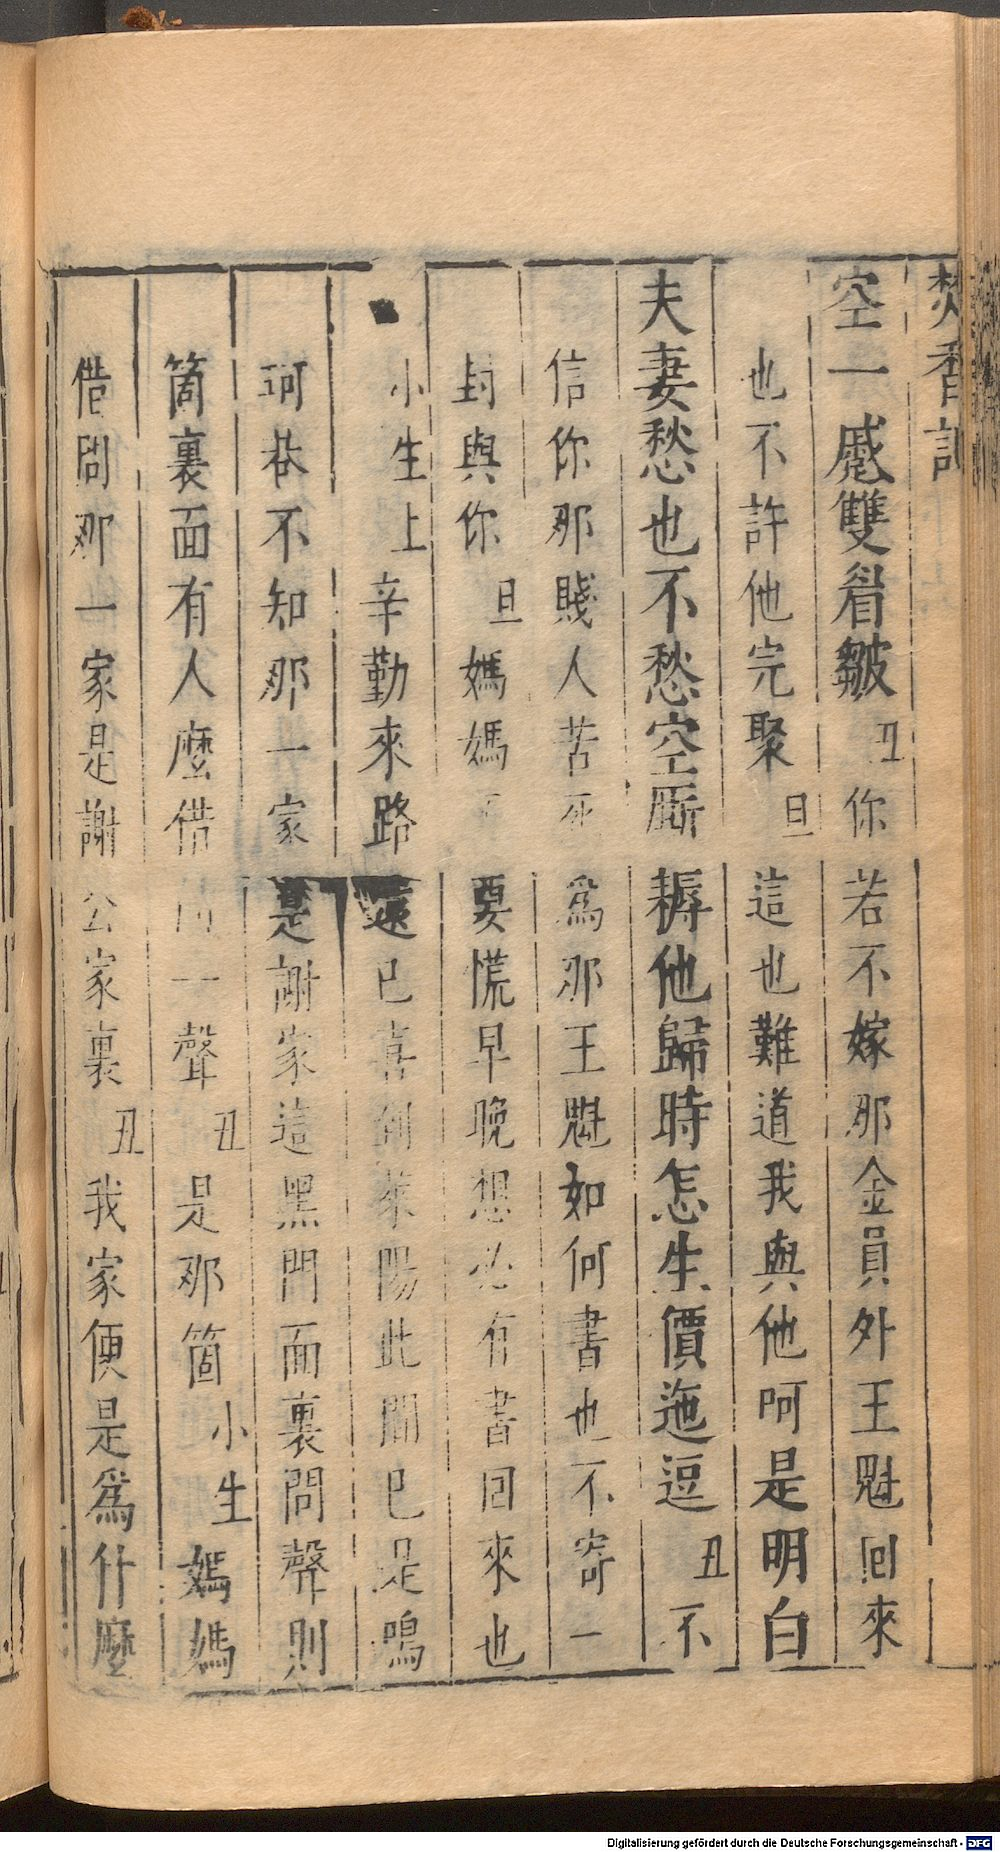 焚香記
空一戚雙眉皺丑你若不嫁那金員外王魁回來
也不許他完聚旦這也難道我與他呵是明白
夫妻愁也不愁空𣃁耨他歸時怎生價迤逗丑不
信你那賤人苦死爲那王魁如何書也不寄一
封與你旦媽媽不要慌早晚想必有書回來也
小生上辛勤來路遠已喜到萊陽此間已是鳴
珂巷不知那一家是謝家這黑門面裏問聲則
箇裏面有人麼借問一聲丑是那箇小生媽媽
借問那一家是謝公家裏丑我家便是爲什麼
Digitalisierung gefördert durch die Deutsche Forschungsgemeinschaft - DFG